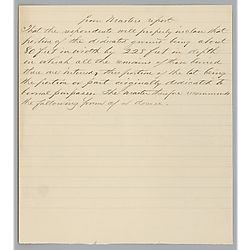 from Masters report
That the respondents will properly inclose that
portion of the dedicated ground being about
80 feet in width by 225 feet in depth
in which all the remains of those buried
there are interred, this portion of the lot being
the portion or part originally dedicated to
burial purposes. The Master therefore recommends
the following form of a decree.